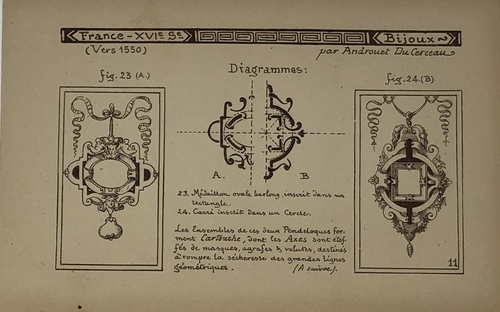 France - XVIe Se
Bijoux
(Vers 1550)
par Androuet DuCerceau
fig. 23 (A.)
Diagrammes:
fig. 24. (B)
A.
B
23. Médaillon ovale barlong, inscrit dans un
rectangle.
24. Carré inscrit dans un Cercle.
Les Ensembles de ces deux Pendeloques for-
ment Cartouche, dont les Axes sont étof-
fés de masques, agrafes & volutes, destinés
à rompre la sécheresse des grandes lignes
géométriques. (A suivre).
11